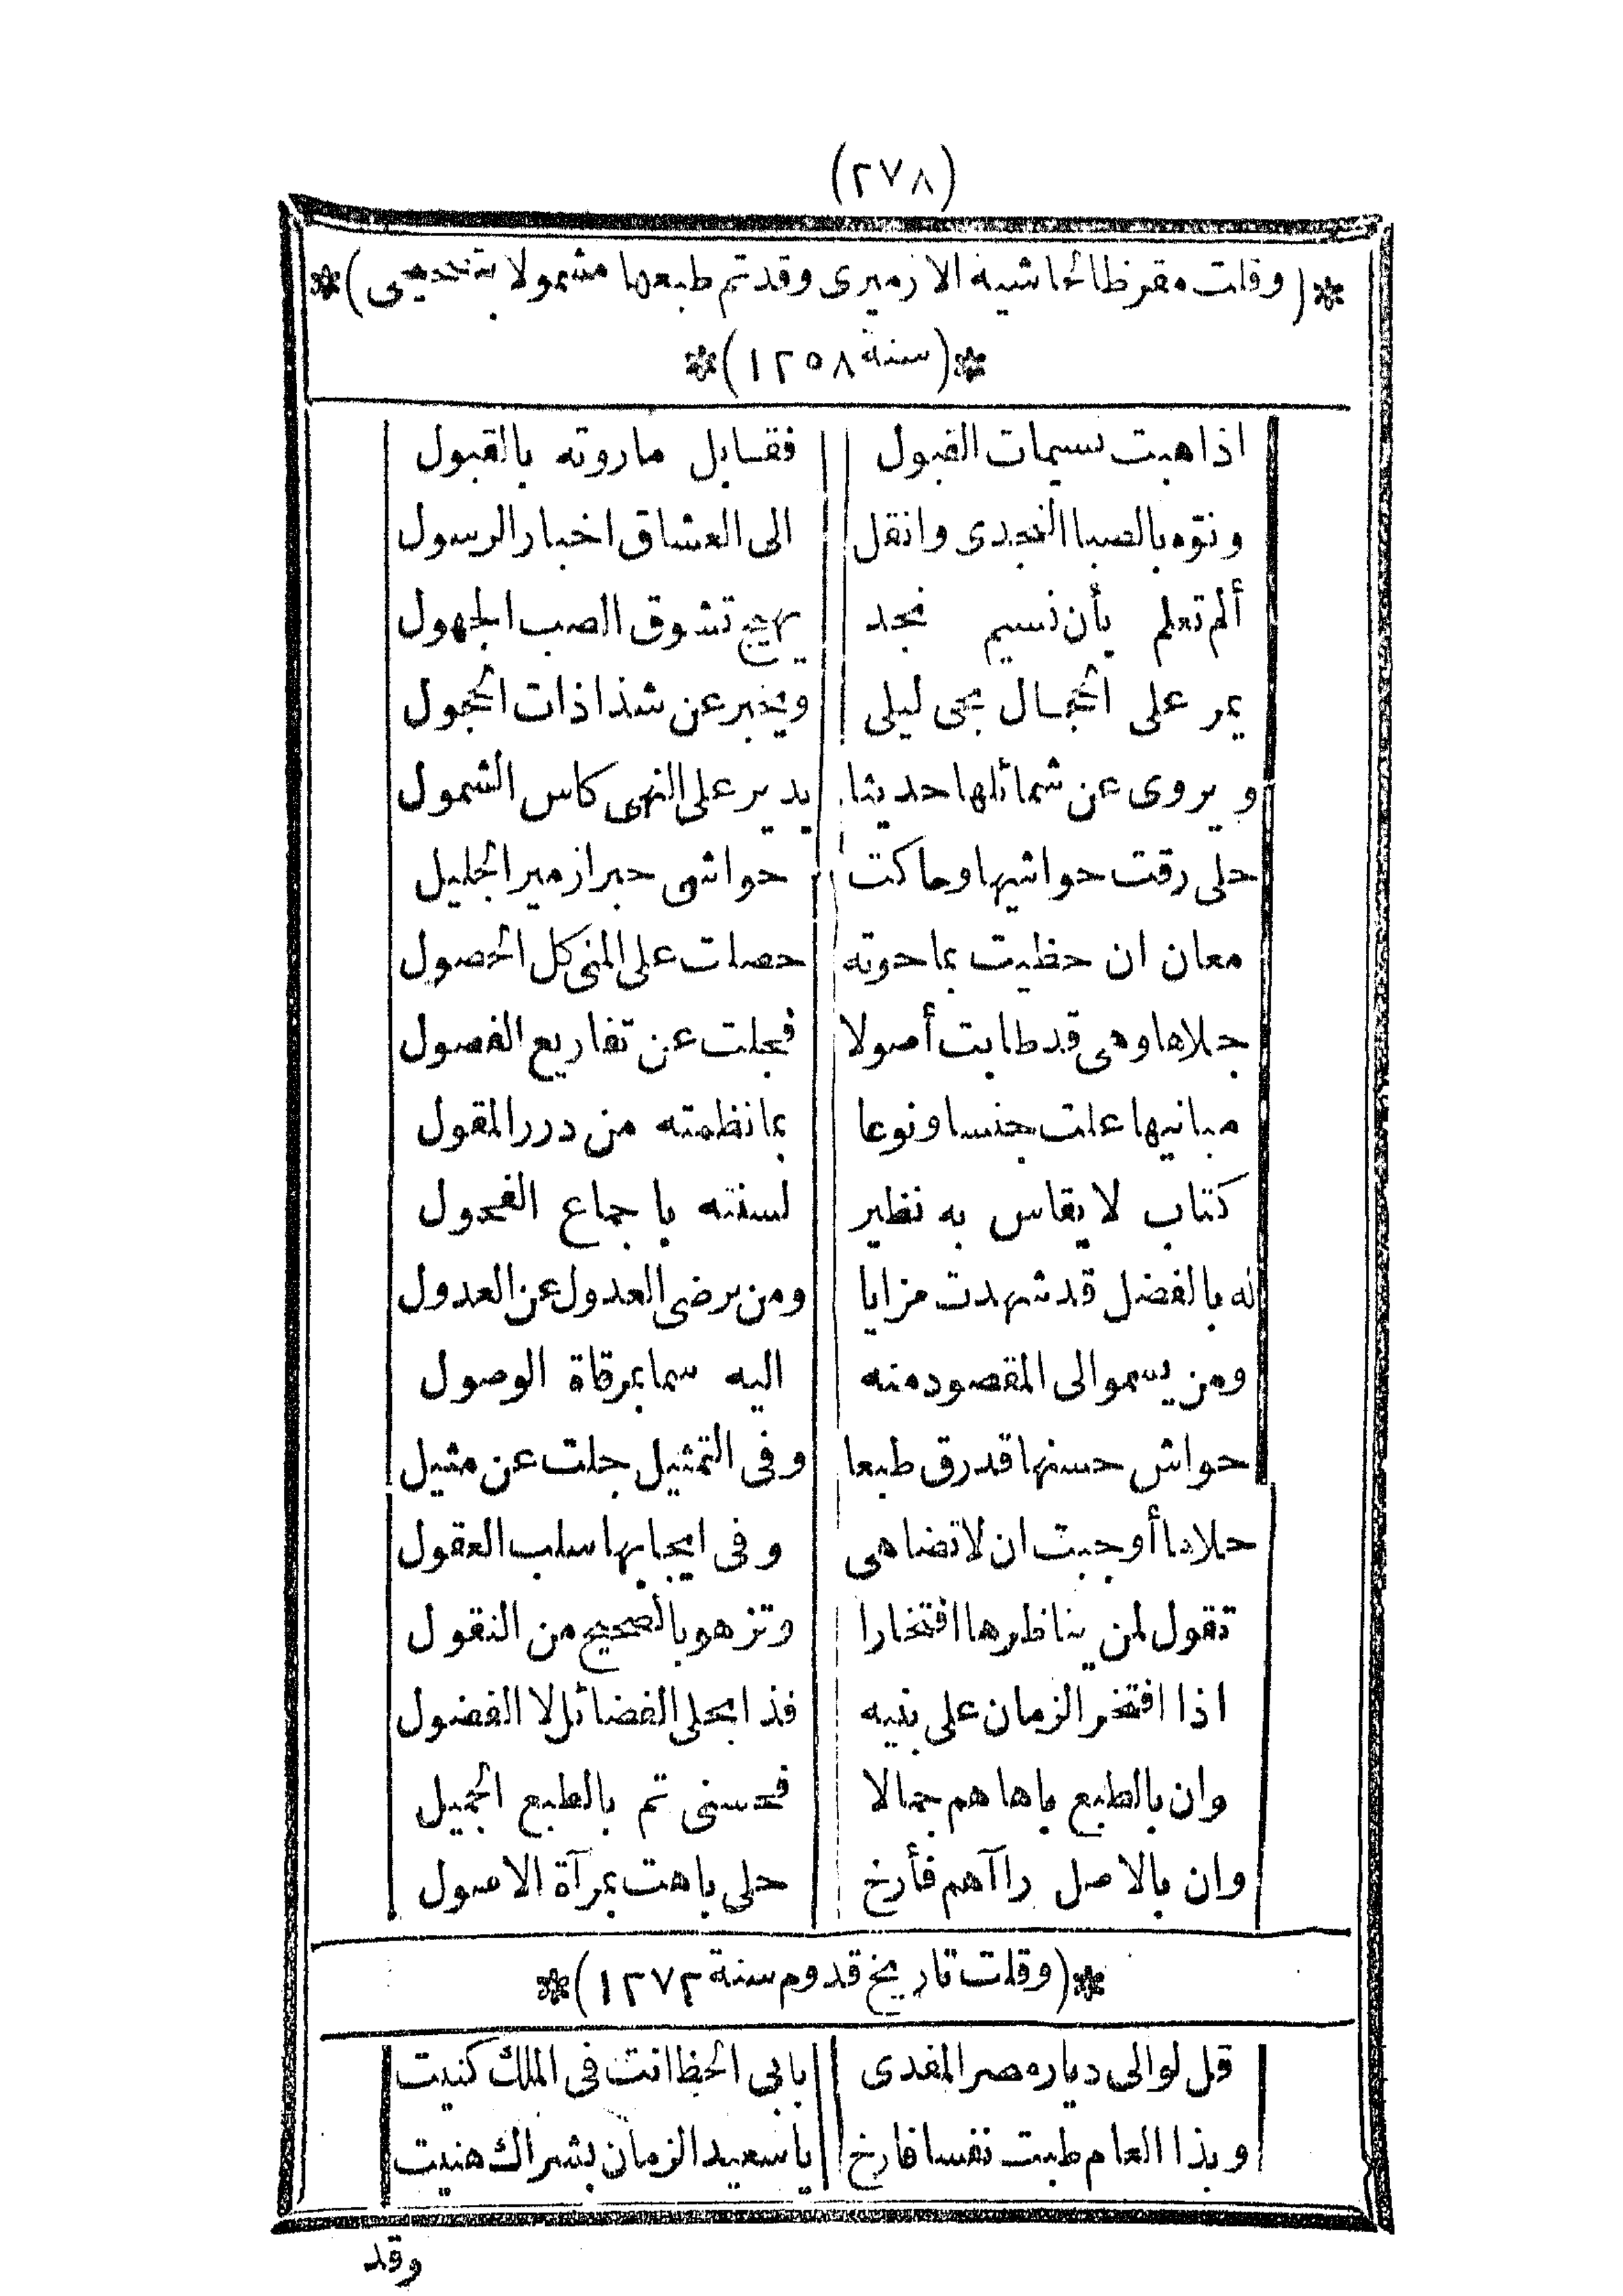 (٢٧٨)
*(وقلت مقرظا لحاشية الازميرى وقد تم طبعها مشمولا بتصحيحى)*
*(سنة ١٢٥٨)*
اذا هبت نسيمات القبول فقابل ماروته بالقبول
ونوّه بالصبا النجدى وانقل الى العشاق اخبار الرسول
ألم تعلم بأن نسيم نجد يهيج تشوق الصب الجهول
يمر على الجمال بحى ليلى ويخبر عن شذا ذات الحجول
ويروى عن شمائلها حديثا يدير على النهى كاس الشمول
حلى رقت حواشيها وحاكت حواشى حبر ازمير الجليل
معان ان حظيت بما حوته حصلت على المنى كل الحصول
جلاها وهى قد طابت أصولا فجلت عن تفاريع الفصول
مبانيها علت جنسا ونوعا بما نظمته من درر المقول
كتاب لا يقاس به نظير لسنته باجماع الفحول
له بالفضل قد شهدت مزايا ومن يرضى العدول عن العدول
ومن يسمو الى المقصود منه اليه سما بمرقاة الوصول
حواش حسنها قد رق طبعا وفى التمثيل جلت عن مثيل
حلاها أوجبت ان لا تضاهى وفى ايجابها سلب العقول
تقول لمن يناظرها افتخارا وتزهو بالصحيح من النقول
اذا افتخر الزمان على بنيه فذا بحلى الفضائل لا الفضول
وان بالطبع باهاهم جمالا فحسنى تم بالطبع الجميل
وان بالاصل راآهم فأرخ حلى باهت بمرآة الاصول
*(وقلت تاريخ قدوم سنة ١٢٧٢)*
قل لوالى ديار مصر المفدى بابى الحظ انت فى الملك كنيت
وبذا العام طبت نفسا فارخ يا سعيد الزمان بشراك هنيت
وقد